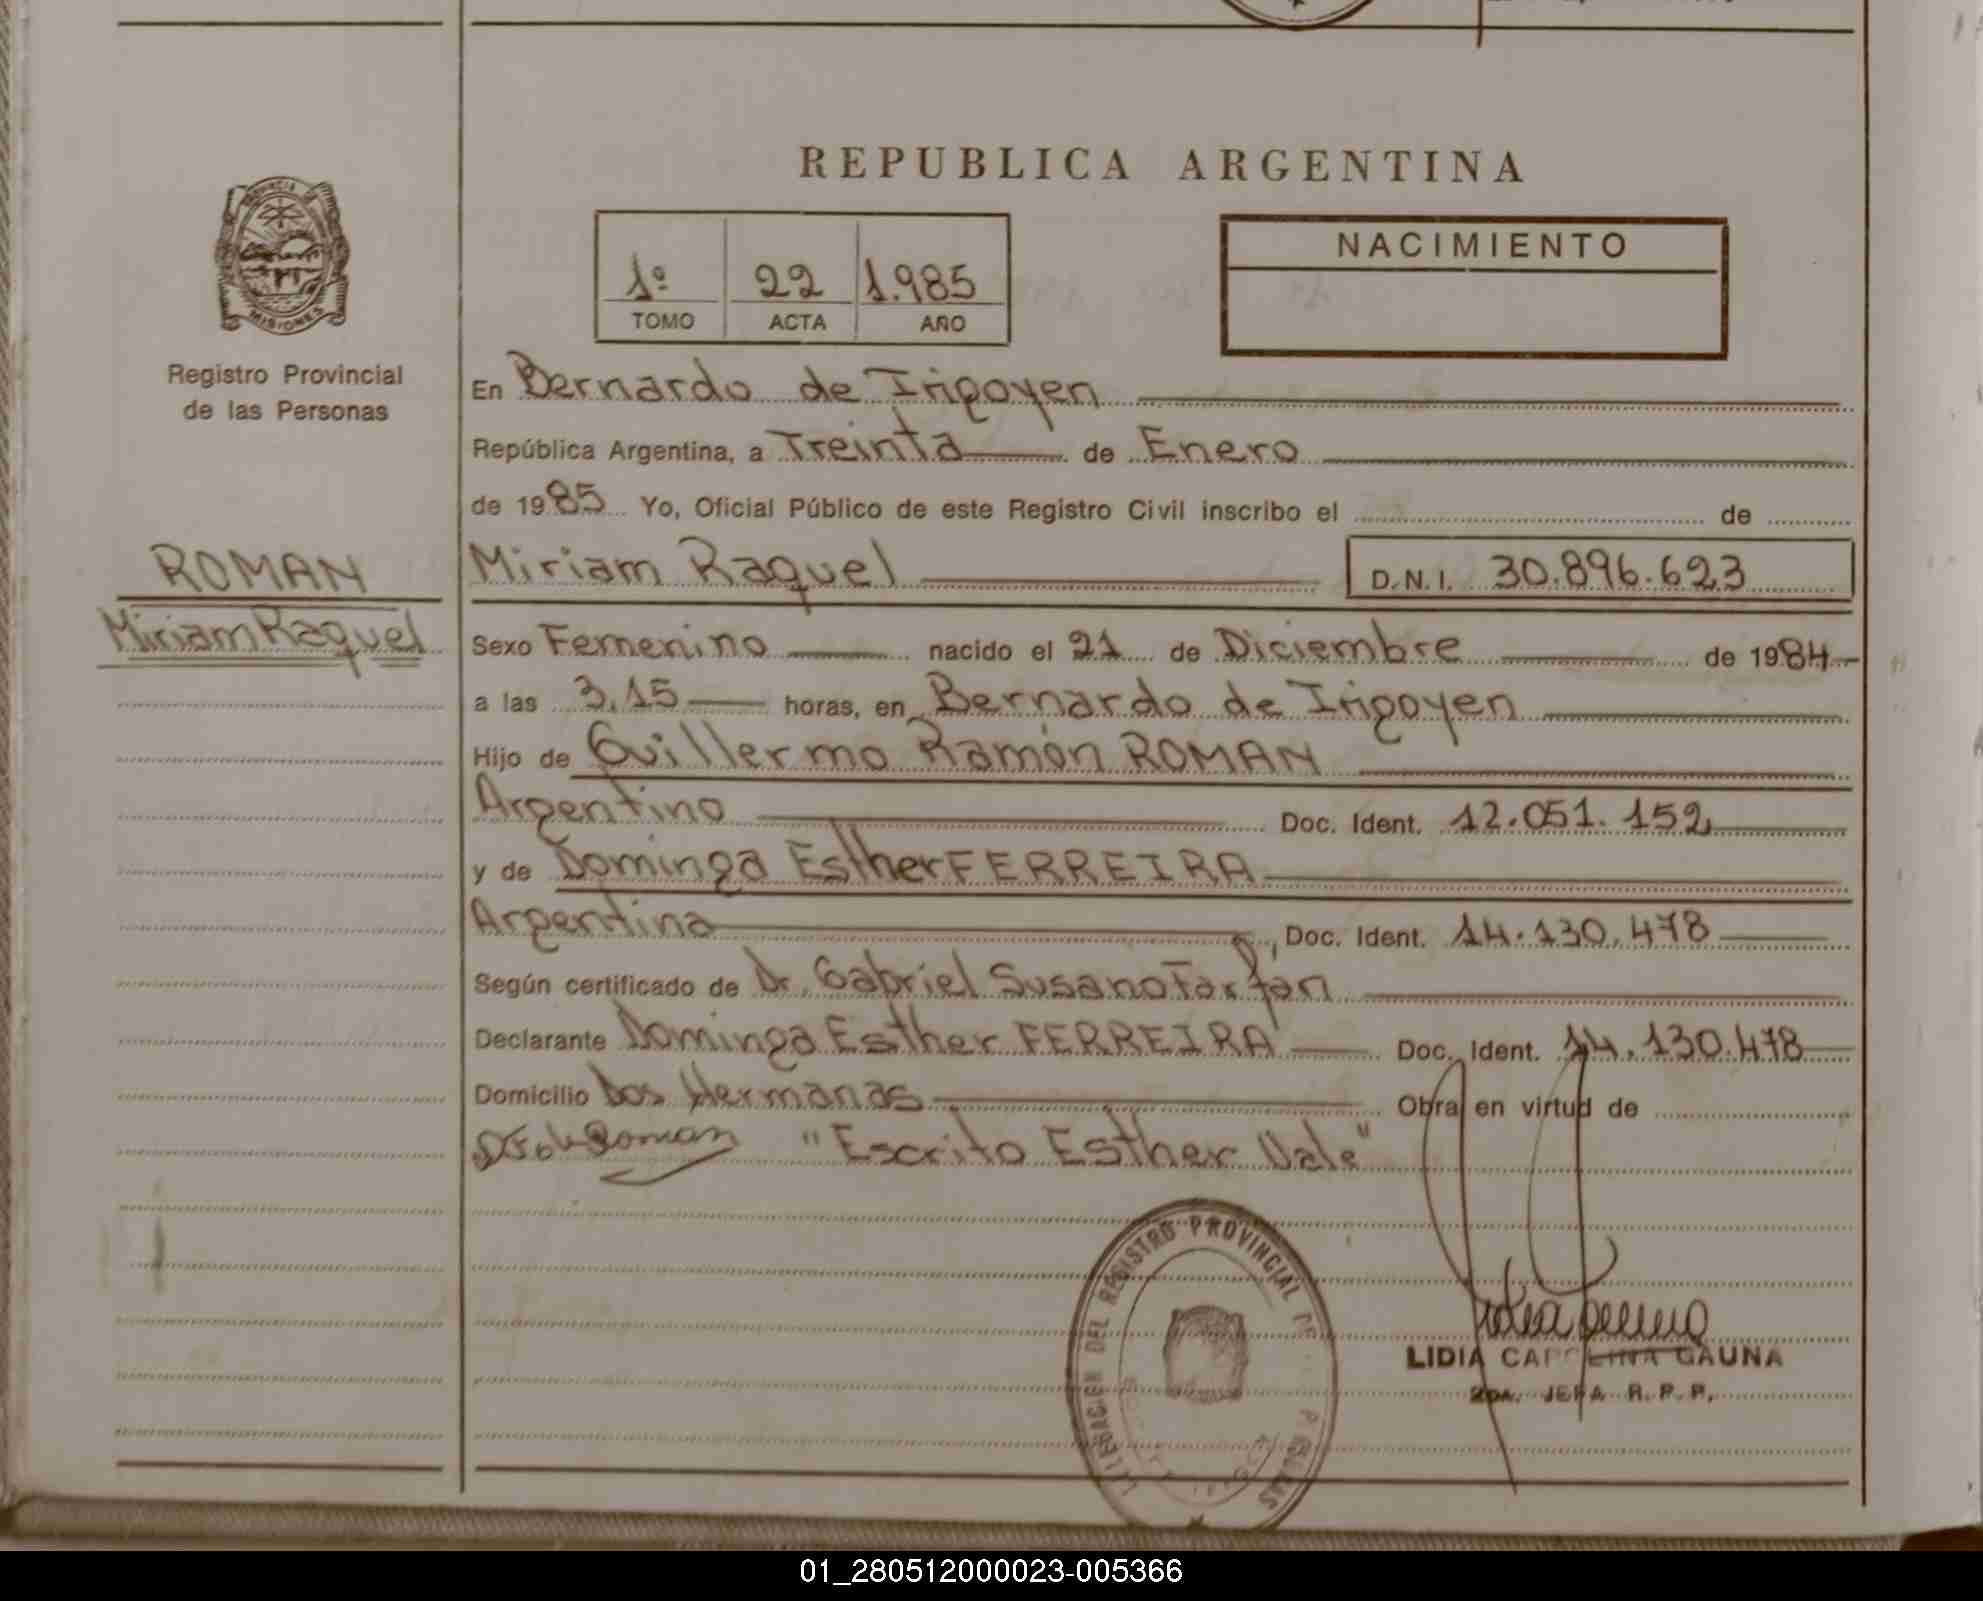 REPUBLICA ARGENTINA
PROVINCIA
MISIONES
Registro Provincial
de las Personas
1º 22 1.985
TOMO ACTA AÑO
NACIMIENTO
En Bernardo de Irigoyen
República Argentina, a Treinta de Enero
de 1985 Yo, Oficial Público de este Registro Civil inscribo el de
ROMAN
Miriam Raquel
Miriam Raquel D.N.I. 30.896.623
Sexo Femenino nacido el 21 de Diciembre de 1984
a las 3,15 horas, en Bernardo de Irigoyen
Hijo de Guillermo Ramón ROMAN
Argentino Doc. Ident. 12.051.152
y de Dominga Esther FERREIRA
Argentina Doc. Ident. 14.130.478
Según certificado de Dr. Gabriel Susano Farfán
Declarante Dominga Esther FERREIRA Doc. Ident. 14.130.478
Domicilio Dos Hermanas Obra en virtud de
Roman "Escrito Esther Vale"
DEL REGISTRO PROVINCIAL DE
LIDIA CAROLINA GAUNA
2DA. JEFA R.P.P.
01_280512000023-005366